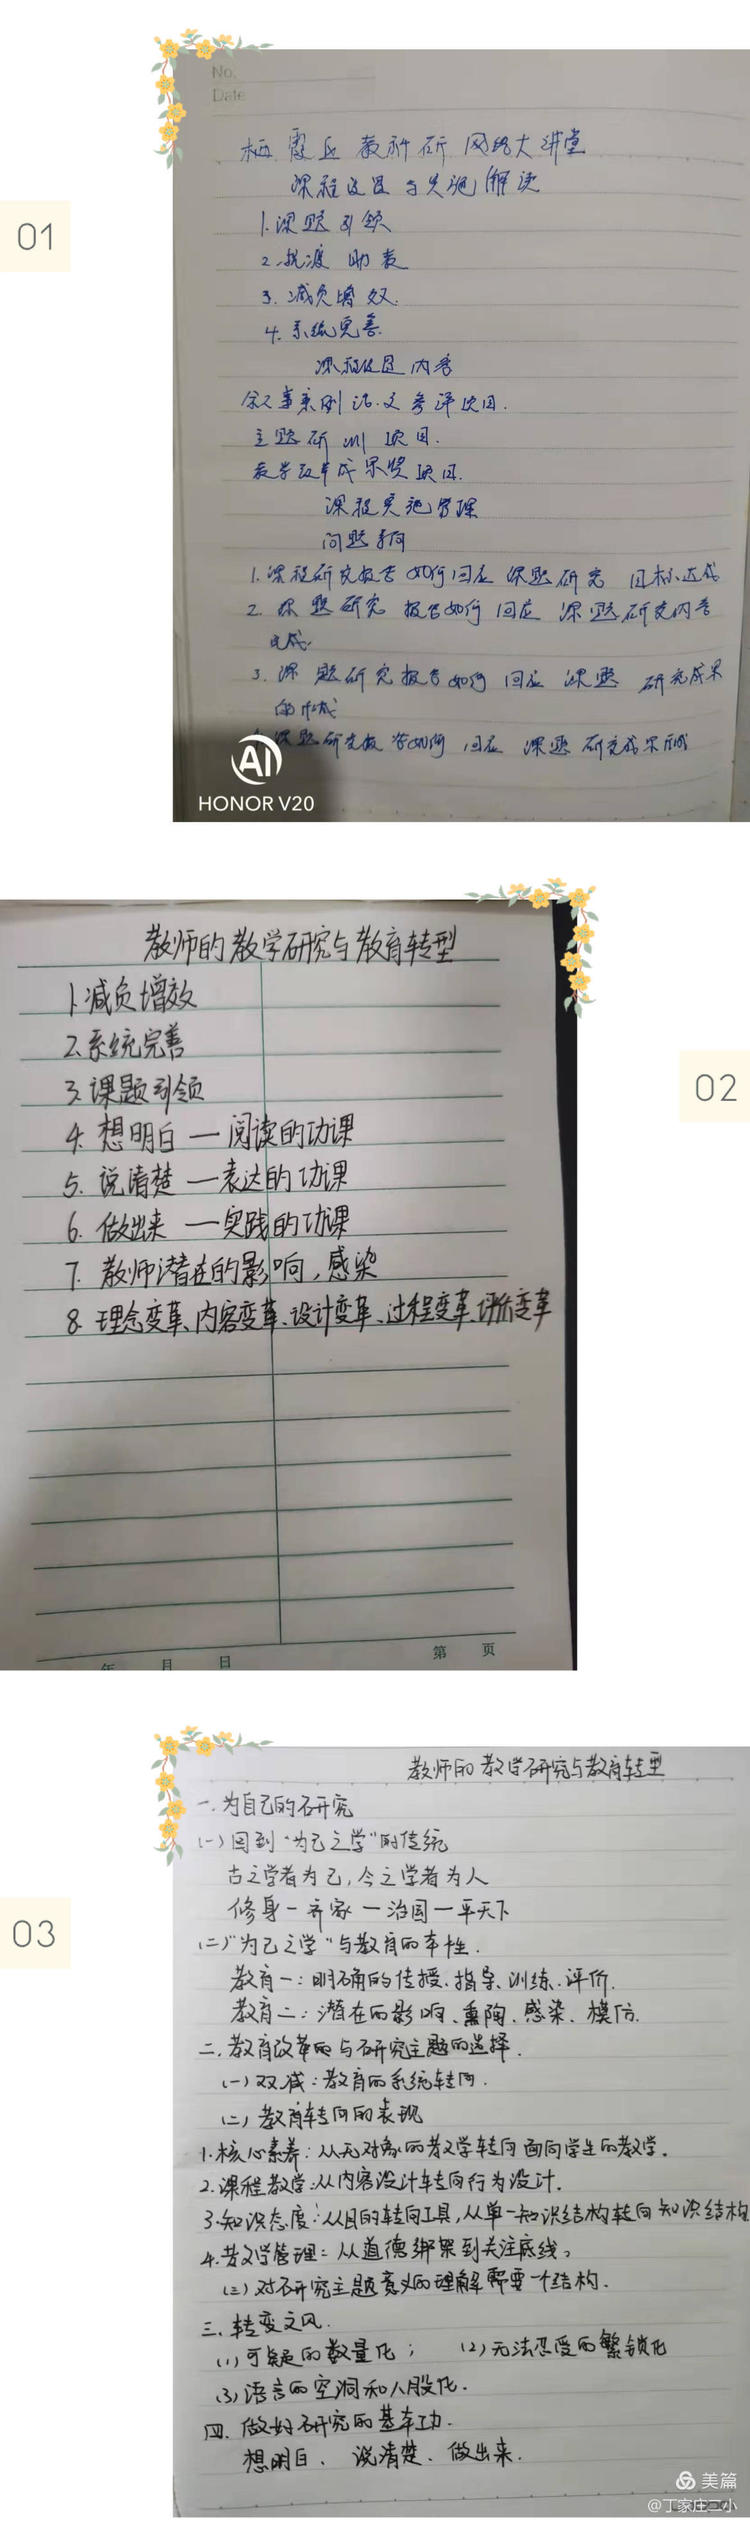 01
No.
Date
栖霞区教科研网络大讲堂
课程设置与实施解读
1.课题引领
2.抗疫助教
3.减负增效.
4.系统完善.
课程设置内容
叙事案例论文参评项目.
主题研训项目.
教学改革成果奖项目.
课程实施管理
问题导向
1.课程研究报告如何回应课题研究目标达成
2.课题研究报告如何回应课题研究内容
完成.
3.课题研究报告如何回应课题研究成果
的形成
课题研究报告如何回应课题研究成果形成
AI
HONOR V20
02
教师的教学研究与教育转型
1.减负增效
2.系统完善
3.课题引领
4.想明白—阅读的功课
5.说清楚—表达的功课
6.做出来—实践的功课
7.教师潜在的影响,感染
8.理念变革、内容变革、设计变革、过程变革、评价变革
年 月 日 第 页
03
教师的教学研究与教育转型
一.为自己的研究
(一)回到“为己之学”的传统
古之学者为己,今之学者为人
修身—齐家—治国—平天下
(二)“为己之学”与教育的本性.
教育一:明确的传授、指导、训练、评价.
教育二:潜在的影响、熏陶、感染、模仿.
二.教育改革的与研究主题的选择.
(一)双减:教育的系统转向.
(二)教育转向的表现
1.核心素养:从无对象的教学转向面向学生的教学.
2.课程教学:从内容设计转向行为设计.
3.知识态度:从目的转向工具,从单一知识结构转向知识结构
4.教学管理:从道德绑架到关注底线。
(三)对研究主题意义的理解需要一个结构.
三.转变文风.
(1)可疑的数量化; (2)无法忍受的繁锁化
(3)语言的空洞和八股化.
四.做好研究的基本功.
想明白、说清楚、做出来.
美篇
@丁家庄二小